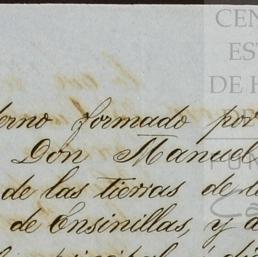 CEN
ES
DE H
erno formado por
Don Manuel
de las tierras de l
de Ensinillas, y a